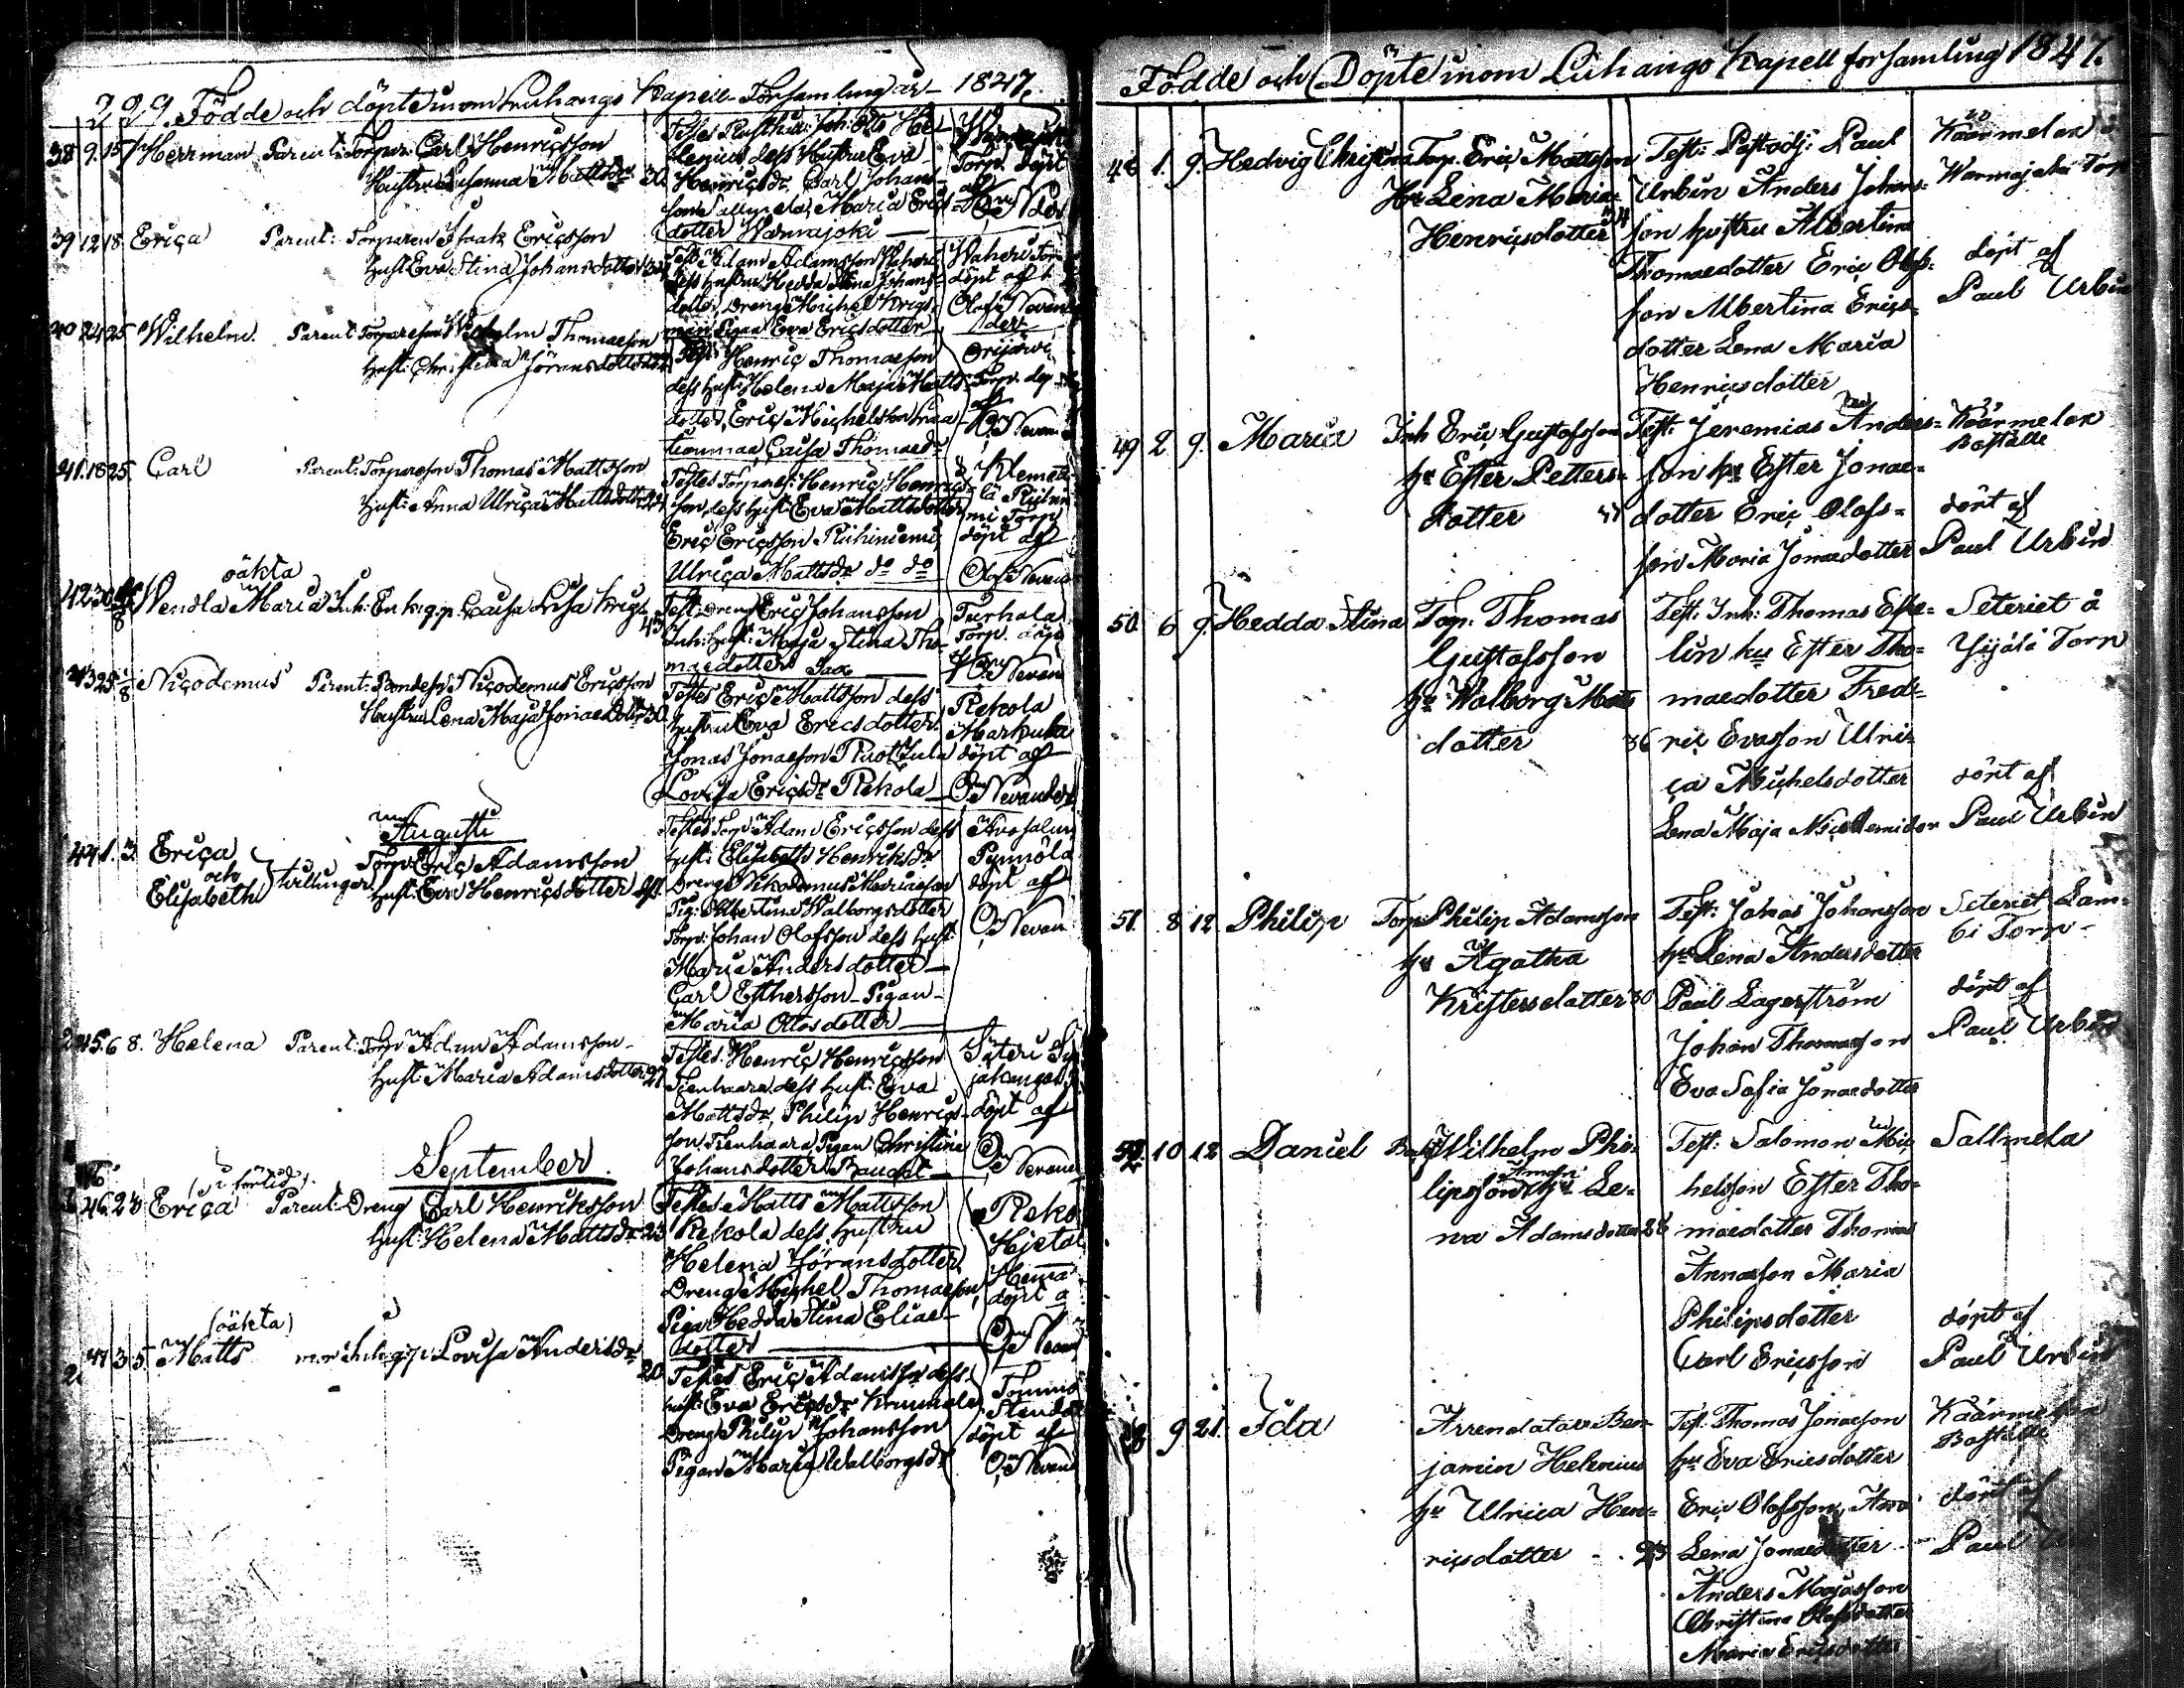 229. Födde och döpte inom Luhango Kapell-Församling år 1847.
38 9. 15 Herrman Parent: Torpar: Carl Henricsson
Hustru Susanna Mattsdr 30.
Testes
Lenius dess Hustru Eva
Henricsdr. Carl Johans-
son Sallmela, Maria Erics-
dotter Warmajoki
Torp. döpt
af
39 12 18 Eriça Parent: Torparen Isaak Ericsson
Hust: Eva Stina Johansdotter
Test: Adam Adamsson
dess hustru Hedda Stina Johans-
dotter, Dreng Michel Krigs-
man Pigan Eva Ericsdotter
Waheri Torp
döpt af
Olof Nevan-
der
40 24 25 Wilhelm. Parent: Torpareson Wilhelm Thomasson
Hust: Christina Göransdotter
Test: Henric Thomasson
dess hust: Helena Maja Matts-
dotter, Eric Michelsson
Caisa Thomasdr
Torp. döp
af
O. Nevan
41. 18 25. Carl Parent: Torpareson Thomas Mattsson
Hust: Anna Ulrica Mattsdotter
Testes Torpares: Henric Henrics-
son, dess hust: Eva Mattsdotter
Eric Ericsson Riihiniemi,
Ulrica Mattsdr do do
Klemet-
lä Riihinie-
mi Torp
döpt af
Olof Nevan
oäkta
42 30 Wendla Maria Inh: Enk: q.p. Caisa Lisa Krigs 43
Test: Dreng Eric Johansson
Inh: hust: Maja Stina Tho-
maedotter
Purhala
Torp. döp
af O. Nevan
43 25 1/8 Nicodemus Parent: Bondes: Nicodemus Ericsson
Hustru Lena Maja Jonaedotter 30
Testes Eric Mattsson dess
hustru Eva Ericsdotter
Jonas Jonasson Ruotjula
Lovisa Ericsdr Rekola
Rekola
Markula
döpt af
O. Nevander
Augusti
44 1. 3 Eriça
och
Elisabeth tvillingar. Torp: Eric Adamsson
Hust: Eva Henricsdotter
Testes Torp: Adam Ericsson dess
hust: Elisabeth Henriksdr
Dreng Nikodemus Mariasson
Pig: Albertina Walborgsdotter
Torp: Johan Olofsson dess hust:
Maria Andersdotter
Carl Esthersson Pigan
Maria Ottosdotter
Avosalmi
Pynnölä
döpt af
O. Nevan
45. 6 8. Helena Parent: Torp: Adam Adamsson
Hust: Maria Adamsdotter 27
Testes. Henric Henricsson
Tienhaara dess hust: Eva
Mattsdr, Philip Henrics-
son Tienhaara Pigan Christina
Johansdotter
Säteri
döpt af
O. Nevan
September.
(i förtid).
46. 2 3 Eriça Parent: Dreng Carl Henriksson
Hust: Helena Mattsdr 23
Testes Matts Mattsson
Rekola dess hustru
Helena Göransdotter
Dreng Michel Thomasson,
Piga Hedda Stina Elias-
dotter
Reko
Hjetal
Hema
döpt a
O. Nevan
(oäkta)
47 3 5 Matts mor inh. q.p. Lovisa Andersdr 20
Testes Eric Adamsson dess
hust: Eva Ericsdr
Dreng Philip Johansson
Pigan Maria Walborgsdr
Tommo
döpt af
O. Nevan
Födde och Döpte inom Luhango Kapell församling 1847.
48 1. 9. Hedvig Christina Torp. Eric Mattsson
Hu Lena Maria
Henricsdotter
Test: Past.adj: Paul
Urbin Anders Johans-
son hustru Albertina
Thomaedotter Eric Olofs-
son Albertina Erics-
dotter Lena Maria
Henricsdotter
Käärmelax
Warmajoki Torp
döpt af
Paul Urbin
49 2 9. Maria Inh Eric Gustafsson
hu Ester Petters-
dotter
Test: Jeremias Anders-
son hu Ester Jonae-
dotter Eric Olofs-
son Maria Jonaedotter
Käärmelax
Boställe
döpt af
Paul Urbin
50. 6 9. Hedda Stina Torp. Thomas
Gustafsson
hu Walborg Matts
dotter 36
Test: Inh: Thomas Eske-
lin hu Ester Tho-
maedotter Fred-
ric Evasson Ulri-
ça Michelsdotter
Lena Maja Nicodemidor
Seteriet å
Torp
döpt af
Paul Urbin
51. 8 12 Philip Torp: Philip Adamsson
hu Agatha
Kristersdotter 30
Test: Johas Johansson
hu Lena Andersdotter
Paul Lagerström
Johan Thomasson
Eva Sofia Jonaedotter
Seteriet Lam-
bi Torp
döpt af
Paul Urbin
52. 10 12 Daniel Wilhelm Phi-
lipsson hu Le-
na Adamsdotter 28
Test: Salomon Mic-
helsson Ester Tho-
maedotter Thomas
Annasson Maria
Philipsdotter
Carl Ericsson
Sallmela
döpt af
Paul Urbin
9 21. Ida Arrendator Ben-
jamin Helenius
hu Ulrica Hen-
ricsdotter 23
Test. Thomas Jonasson
hu Eva Ericsdotter
Eric Olofsson,
Lena Jonaedotter
Anders Majasson
Christina Olofsdotter
Maria Ericsdotter
Käärmelax
Boställe
döpt af
Paul